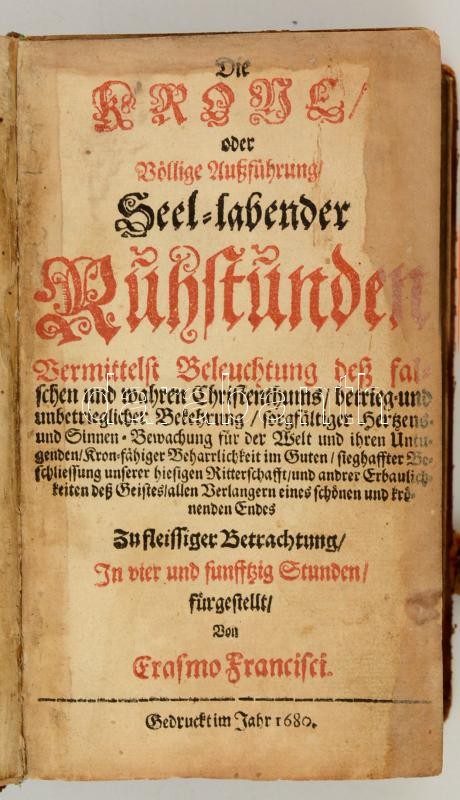 Die
KRONE/
oder
Völlige Außführung/
Seel-labender
Ruhstunden
Vermittelst Beleuchtung deß fal-
schen und wahren Christenthums/ betrieg-und
unbetrieglicher Bekehrung/ sorgfältiger Hertzens-
und Sinnen-Bewachung für der Welt und ihren Untu-
genden/Kron-fähiger Beharrlichkeit im Guten/ sieghaffter Be-
schliessung unserer hiesigen Ritterschafft/und andrer Erbaulich-
keiten deß Geistes/allen Verlangern eines schönen und krö-
nenden Endes
Zu fleissiger Betrachtung/
In vier und funfftzig Stunden/
fürgestellt/
Von
Erasmo Francisci.
Gedruckt im Jahr 1680.